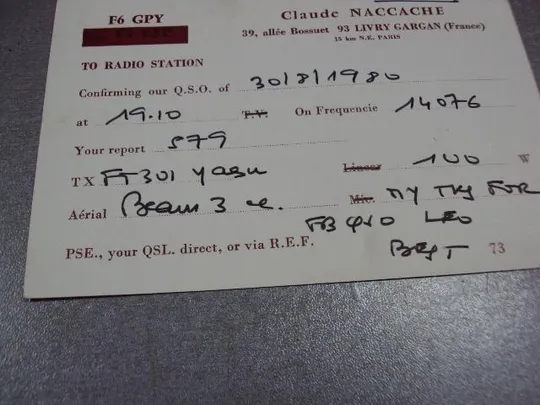 F6 GPY
Claude NACCACHE
39, allée Bossuet 93 LIVRY GARGAN (France)
15 km N.E. PARIS
TO RADIO STATION
Confirming our Q.S.O. of 30/8/1980
at 19.10 T.U. On Frequencie 14076
Your report 579
TX FT301 Yaesu Linear 100 W
Aérial Beam 3 e. Mic. MY TKS FOR
FB QSO LEO
PSE., your QSL. direct, or via R.E.F. BEST 73